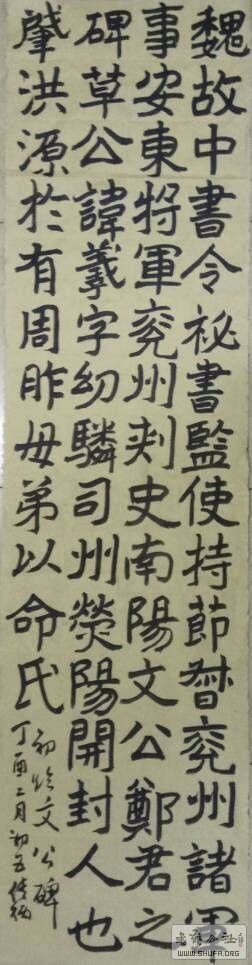 魏故中書令祕書監使持節督兖州諸軍
事安東将軍兖州刾史南陽文公鄭君之
碑草公諱羲字幼驎司州滎陽開封人也
肇洪源於有周胙母弟以命氏
初临文公碑
丁酉二月初五
WWW.SHUFA.ORG